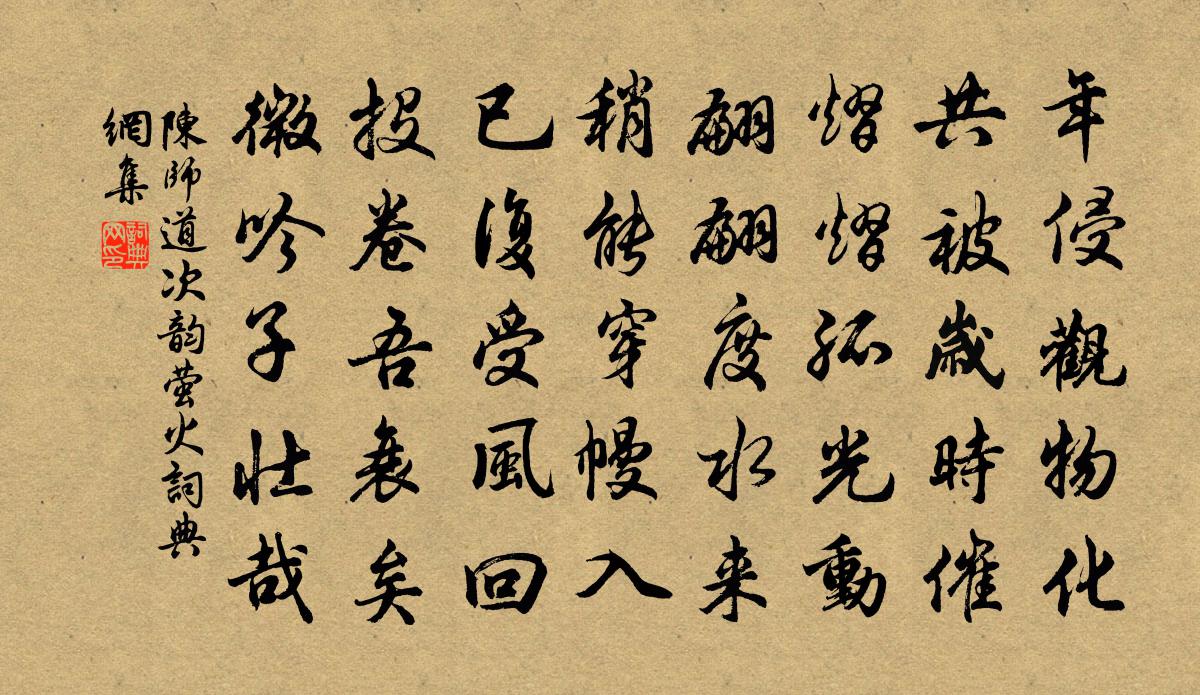 年侵觀物化
共被歲時催
熠熠孤光動
翩翩度水来
稍能穿幔入
已復受風回
投卷吾衰矣
微吟子壮哉
陳師道次韵萤火詞典
網集
詞典
网印